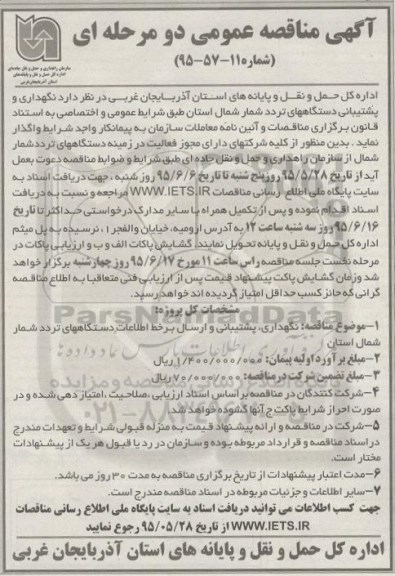 آگهی مناقصه عمومی دو مرحله ای
(شماره ۱۱-۵۷-۹۵)
سازمان راهداری و حمل و نقل جاده‌ای
اداره کل حمل و نقل و پایانه‌های
استان آذربایجان‌غربی
اداره کل حمل و نقل و پایانه های استان آذربایجان غربی در نظر دارد نگهداری و
پشتیبانی دستگاههای تردد شمار شمال استان طبق شرایط عمومی و اختصاصی به استناد
قانون برگزاری مناقصات و آئین نامه معاملات سازمان به پیمانکار واجد شرایط واگذار
نماید . بدین منظور از کلیه شرکتهای دارای مجوز فعالیت در زمینه دستگاههای ترددشمار
شمال از سازمان راهداری و حمل و نقل جاده ای طبق شرایط و ضوابط مناقصه دعوت بعمل
آید از تاریخ ۹۵/۵/۲۸ روز پنج شنبه تا تاریخ ۹۵/۶/۶ روز شنبه ، جهت دریافت اسناد به
سایت پایگاه ملی اطلاع رسانی مناقصات WWW.IETS.IR مراجعه و نسبت به دریافت
اسناد اقدام نموده و پس از تکمیل همراه با سایر مدارک درخواستی حداکثر تا تاریخ
۹۵/۶/۱۶ روز سه شنبه ساعت ۱۲ به آدرس ارومیه، خیابان والفجر۱، نرسیده به پل میثم
اداره کل حمل و نقل و پایانه تحویل نمایند. گشایش پاکات الف و ب و ارزیابی پاکات در
مرحله نخست جلسه مناقصه راس ساعت ۱۱ مورخ ۹۵/۶/۱۷ روز چهارشنبه برگزار خواهد
شد وزمان گشایش پاکت پیشنهاد قیمت پس از ارزیابی فنی متعاقبا به اطلاع مناقصه
گرانی که حائز کسب حداقل امتیاز گردیده اند خواهد رسید.
مشخصات کل پروژه:
۱-موضوع مناقصه: نگهداری، پشتیبانی و ارسال برخط اطلاعات دستگاههای تردد شمار
شمال استان
۲-مبلغ برآورد اولیه پیمان: ۱/۴۰۰/۰۰۰/۰۰۰ ریال
۳-مبلغ تضمین شرکت در مناقصه: ۷۰/۰۰۰/۰۰۰ ریال
۴-شرکت کنندگان در مناقصه بر اساس اسناد ارزیابی ،صلاحیت ،امتیاز دهی شده و در
صورت احراز شرایط پاکت ج آنها گشوده خواهد شد.
۵-شرکت در مناقصه و ارائه پیشنهاد قیمت به منزله قبولی شرایط و تعهدات مندرج
در اسناد مناقصه و قرارداد مربوطه بوده و سازمان در رد یا قبول هر یک از پیشنهادات
مختار است.
۶-مدت اعتبار پیشنهادات از تاریخ برگزاری مناقصه به مدت ۳۰ روز می باشد.
۷-سایر اطلاعات و جزئیات مربوطه در اسناد مناقصه مندرج است.
جهت کسب اطلاعات می توانید دریافت اسناد به سایت پایگاه ملی اطلاع رسانی مناقصات
WWW.IETS.IR از تاریخ ۹۵/۰۵/۲۸ رجوع نمایید
اداره کل حمل و نقل و پایانه های استان آذربایجان غربی